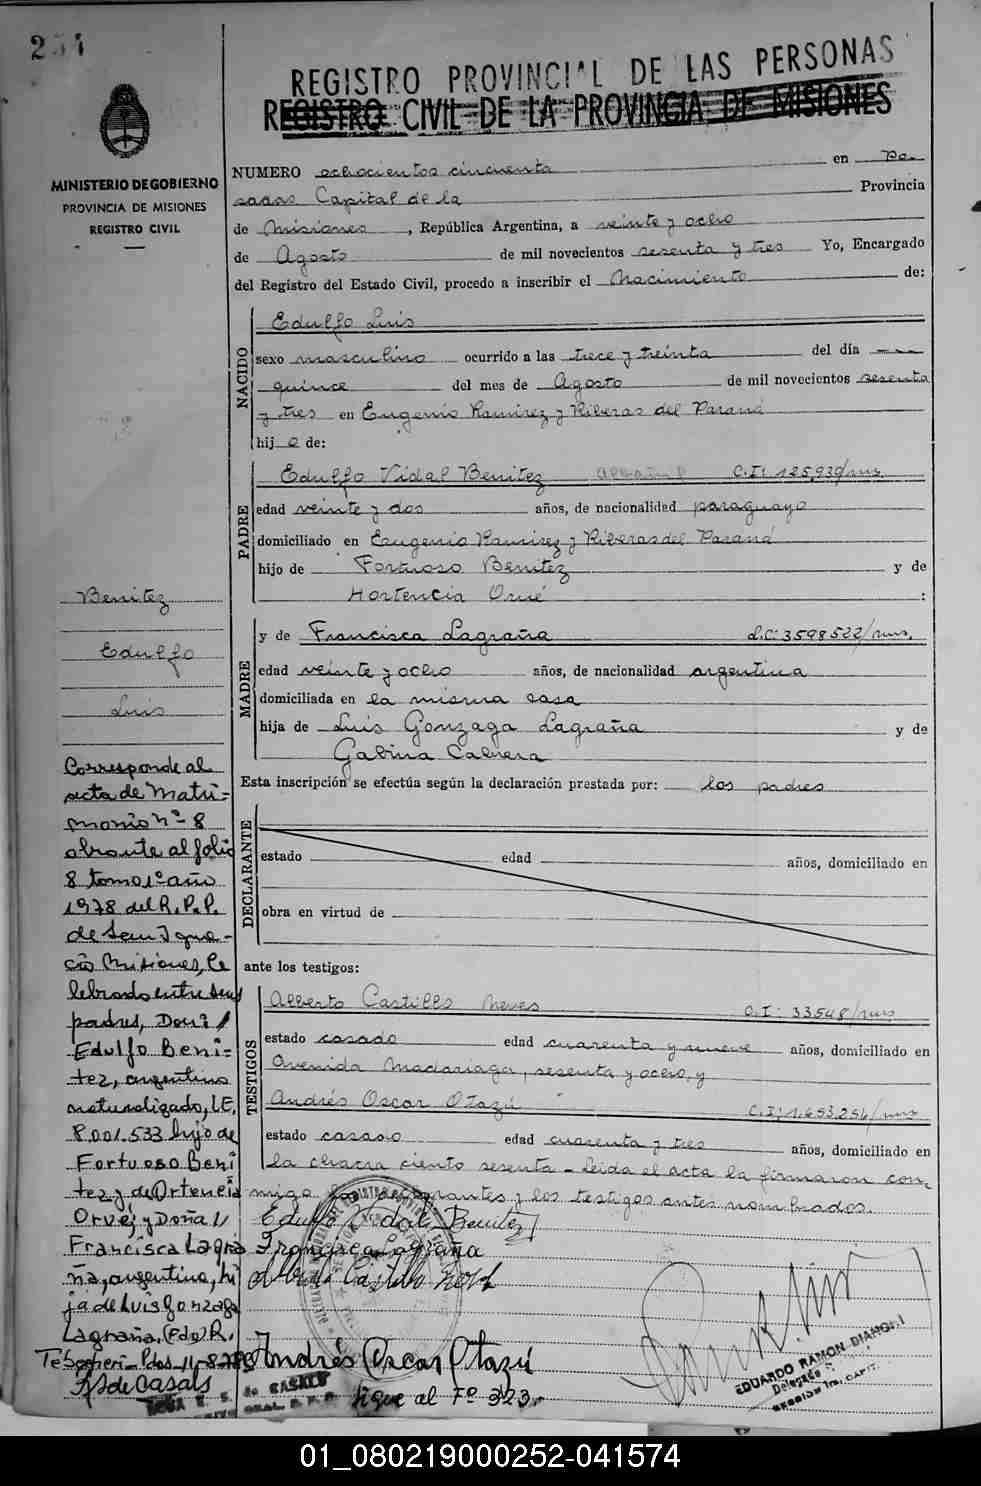 REGISTRO PROVINCIAL DE LAS PERSONAS
REGISTRO CIVIL DE LA PROVINCIA DE MISIONES
MINISTERIO DE GOBIERNO
PROVINCIA DE MISIONES
REGISTRO CIVIL
NUMERO ochocientos cincuenta en Po-
sadas Capital de la Provincia
de Misiones, República Argentina, a veinte y ocho
de Agosto de mil novecientos sesenta y tres Yo, Encargado
del Registro del Estado Civil, procedo a inscribir el Nacimiento de:
NACIDO
Edulfo Luis
sexo masculino ocurrido a las trece y treinta del día
quince del mes de Agosto de mil novecientos sesenta
y tres en Eugenio Ramirez y Riberas del Paraná
hijo de:
PADRE
Edulfo Vidal Benitez albañil C.I: 125,939/mns.
edad veinte y dos años, de nacionalidad paraguayo
domiciliado en Eugenio Ramirez y Riberas del Paraná
hijo de Fortuoso Benitez y de
Hortencia Orué :
MADRE
y de Francisca Lagraña L.C: 3598522/mns.
edad veinte y ocho años, de nacionalidad argentina
domiciliada en la misma casa
hija de Luis Gonzaga Lagraña y de
Gabina Cabrera
Esta inscripción se efectúa según la declaración prestada por: los padres
DECLARANTE
estado edad años, domiciliado en
obra en virtud de
ante los testigos:
TESTIGOS
Alberto Castillo Neves C.I: 33548/mns
estado casado edad cuarenta y nueve años, domiciliado en
Avenida Madariaga, sesenta y ocho, y
Andrés Oscar Otazú C.I: 1,653,254/mns
estado casado edad cuarenta y tres años, domiciliado en
la chacra ciento sesenta - Leida el acta la firmaron con-
migo los declarantes y los testigos antes nombrados.
Edulfo Vidal Benitez
Francisca Lagraña
Alberto Castillo Neves
Andrés Oscar Otazú
Sigue al Fº 323.-
EDUARDO RAMON DIANGELI
Delegado
Benitez
Edulfo
Luis
Corresponde al
acta de Matri-
monio nº 8
obrante al folio
8 tomo 1º año
1978 del R.P.P.
de San Igna-
cio Misiones, Ce
lebrado entre sus
padres, Don:/
Edulfo Beni-
tez, argentino
naturalizado, L.E.
8.001.533 hijo de
Fortuoso Beni
tez y de Ortencia
Orvej y Doña //
Francisca Lagra
ña, argentina, hi
ja de Luis Gonzaga
Lagraña, (Fdo) R.
11-8-78
de Casals
01_080219000252-041574